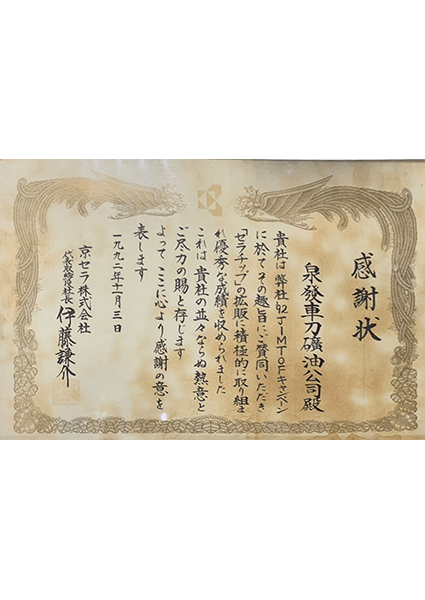 感謝状
泉發車刀礦油公司殿
貴社は弊社'92JIMTOFキャンペーン
に於てその趣旨にご賛同いただき
「セラチップ」の拡販に積極的に取り組ま
れ優秀な成績を収められました
これは貴社の並々ならぬ熱意と
ご尽力の賜と存じます
よってここに心より感謝の意を
表します
一九九二年十一月三日
京セラ株式会社
代表取締役社長 伊藤謙介